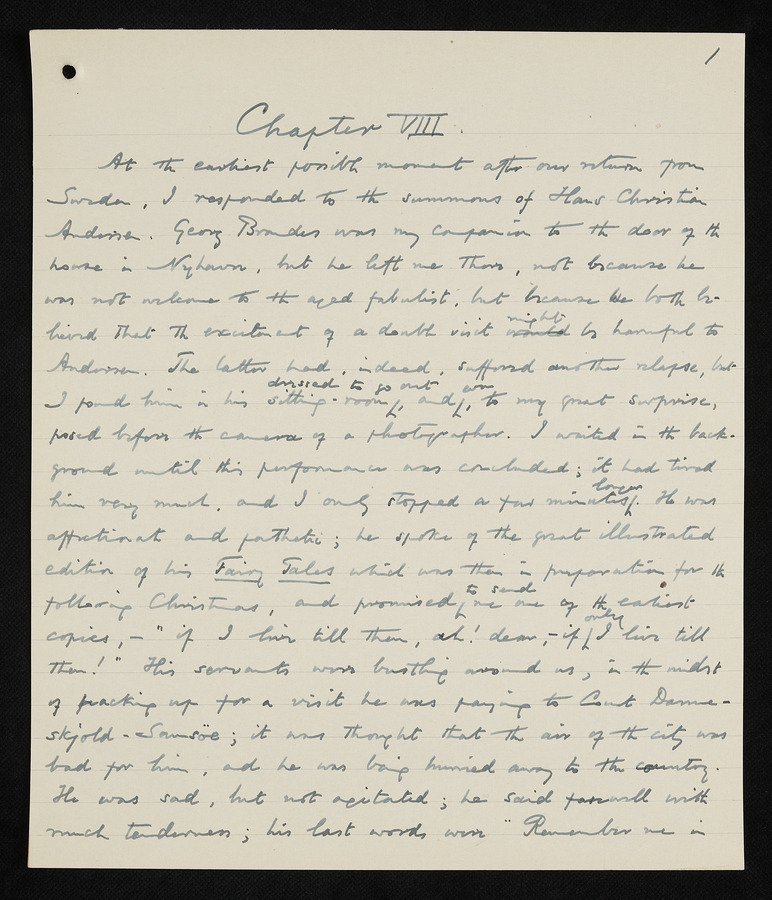 1
Chapter VIII.
At the earliest possible moment after our return from
Sweden, I responded to the summons of Hans Christian
Andersen. Georg Brandes was my companion to the door of the
house in Nyhavn, but he left me there, not because he
was not welcome to the aged fabulist, but because we both be-
lieved that the excitement of a double visit would might be harmful to
Andersen. The latter had, indeed, suffered another relapse, but
I found him in his sitting-room, dressed to go out and, even, to my great surprise,
posed before the camera of a photographer. I waited in the back-
ground until this performance was concluded; it had tired
him very much, and I only stopped a few minutes longer. He was
affectionate and pathetic; he spoke of the great illustrated
edition of his Fairy Tales which was then in preparation for the
following Christmas, and promised to send me one of the earliest
copies, – "if I live till then, ah! dear, – if only I live till
then!" His servants were bustling around us, in the midst
of packing up for a visit he was paying to Count Danne-
skjold-Samsöe; it was thought that the air of the city was
bad for him, and he was being hurried away to the country.
He was sad, but not agitated; he said farewell with
much tenderness; his last words were "Remember me in